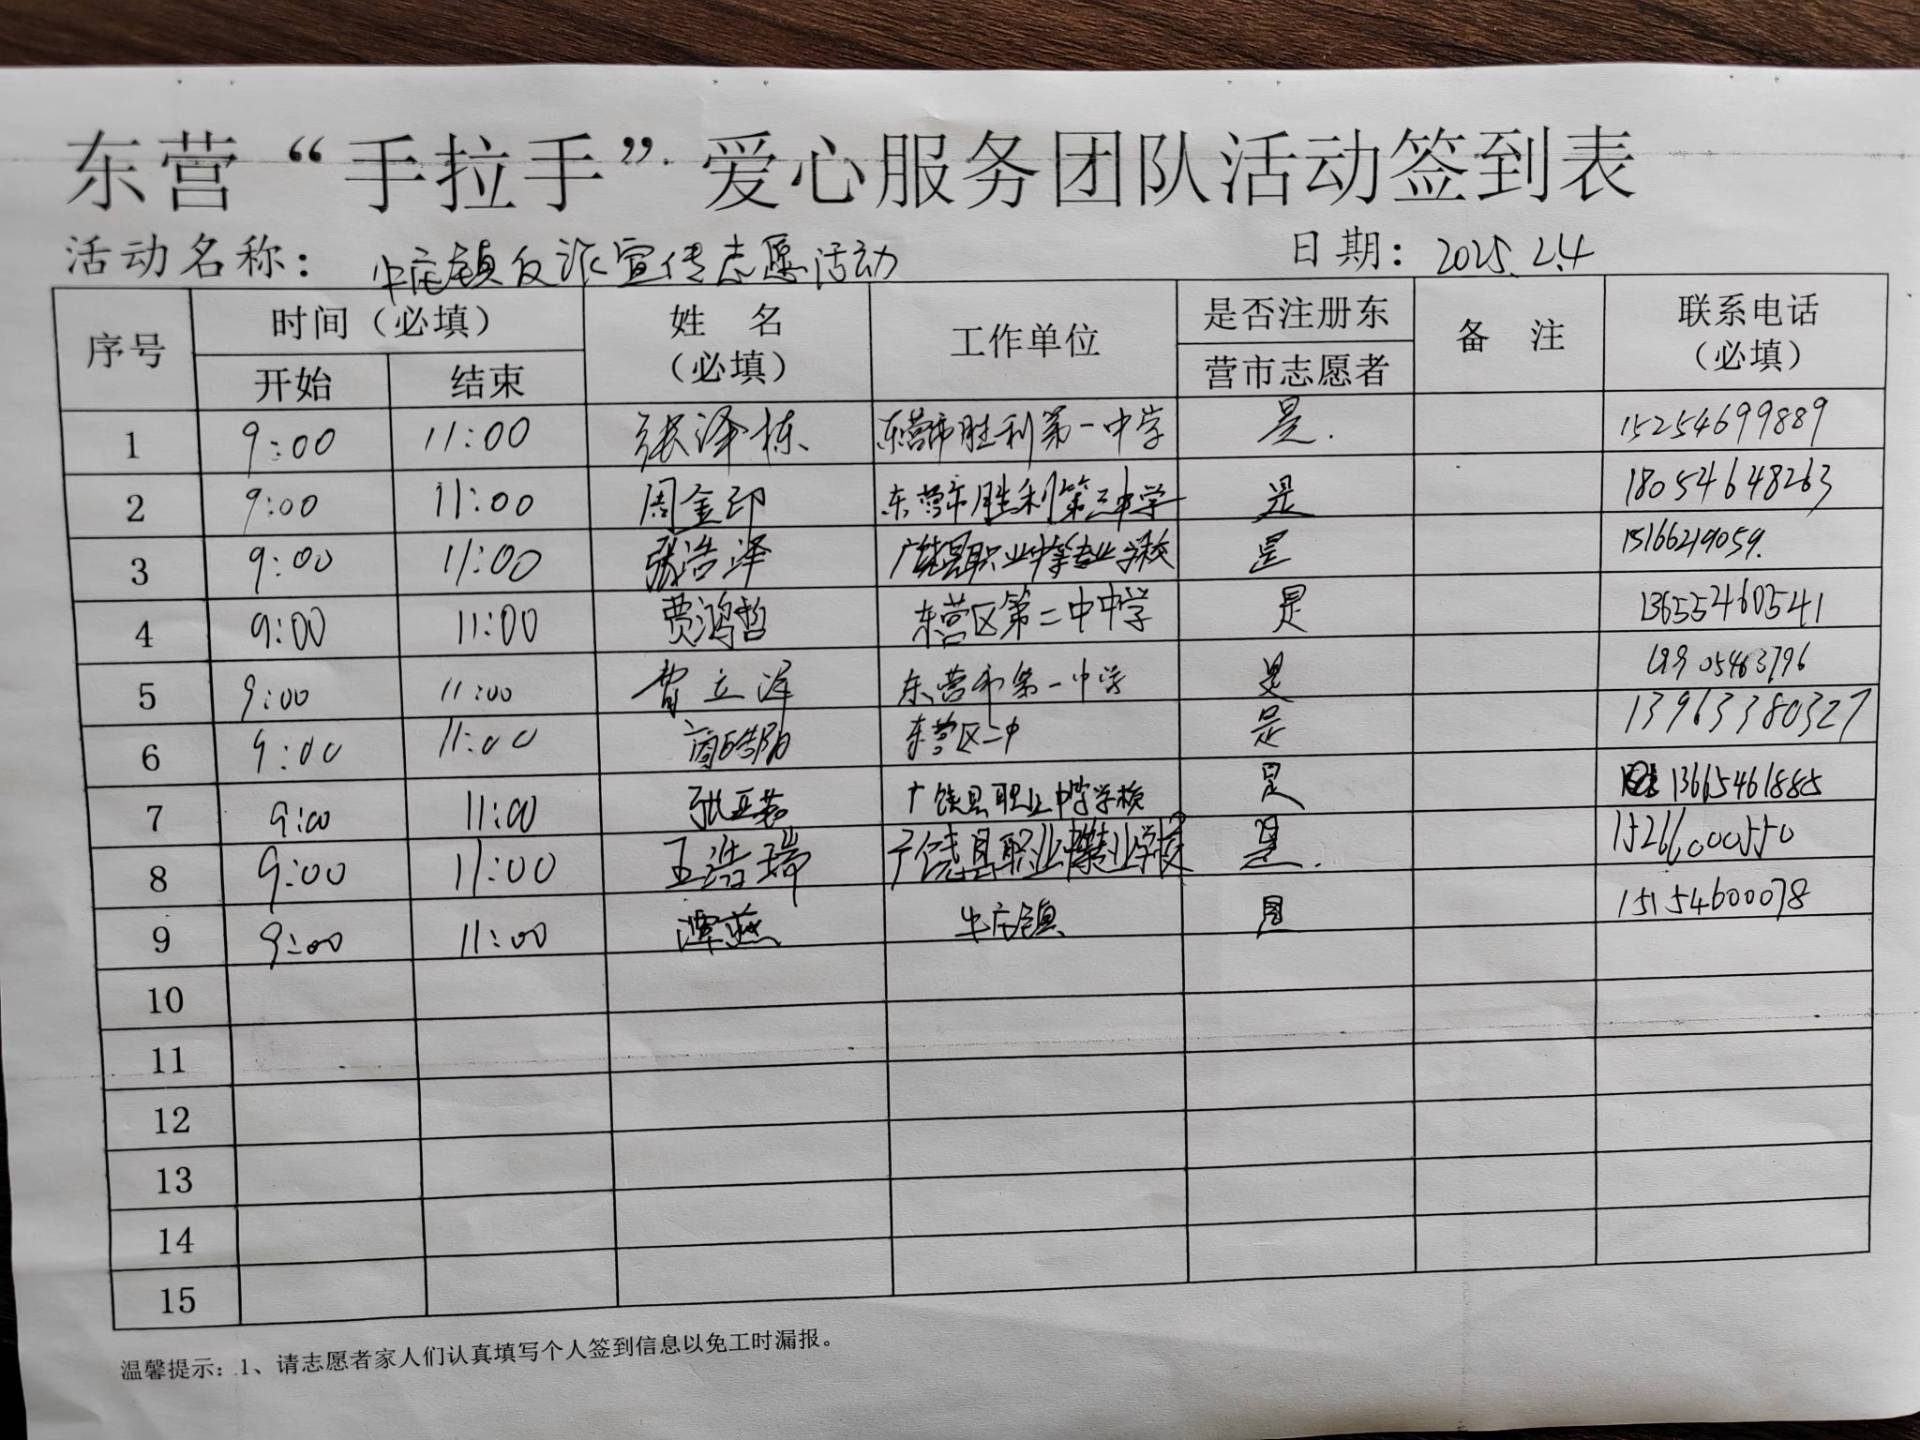 东营“手拉手”爱心服务团队活动签到表
活动名称：牛庄镇反诈宣传志愿活动 日期：2025.2.4
序号 时间（必填） 姓 名（必填） 工作单位 是否注册东营市志愿者 备 注 联系电话（必填）
开始 结束
1 9:00 11:00 张泽栋 东营市胜利第一中学 是. 15254699889
2 9:00 11:00 周金印 东营市胜利第三中学 是 18054648263
3 9:00 11:00 张浩泽 广饶县职业中等专业学校 是 15166219059.
4 9:00 11:00 贾鸿哲 东营区第二中中学 是 13655460541
5 9:00 11:00 曹立泽 东营市第一中学 是 19905463796
6 9:00 11:00 商皓阳 东营区二中 是 13963380327
7 9:00 11:00 张亚茹 广饶县职业中学学校 是 13665461885
8 9:00 11:00 王浩瑞 广饶县职业中等专业学校 是. 15266000550
9 9:00 11:00 潭燕 牛庄镇 是 15154600078
10
11
12
13
14
15
温馨提示：1、请志愿者家人们认真填写个人签到信息以免工时漏报。